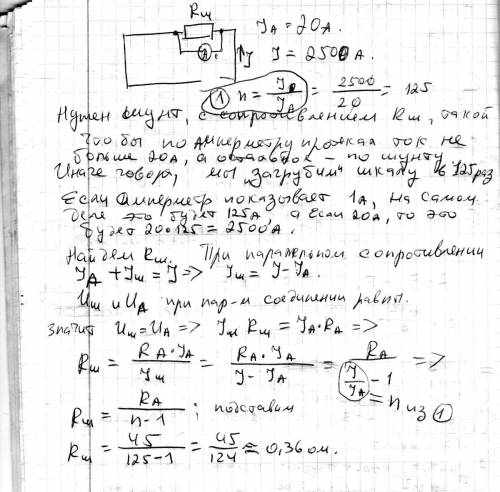 Rш
A
J
JA = 20A.
J = 2500A.
① n = J/JA = 2500/20 = 125
Нужен шунт, с сопротивлением Rш, такой
чтобы по амперметру прошел ток не
больше 20А, а остаток - по шунту.
Иначе говоря, мы "загрубим" шкалу в 125 раз
Если Амперметр показывает 1А, на самом
деле это будет 125А, а если 20А, то это
будет 20·125 = 2500А.
Найдем Rш. При паралельном сопротивлении
JA + Jш = J => Jш = J - JA.
Uш и UA при пар-м соединении равны.
значит Uш = UA => Jш Rш = JA·RA =>
Rш = RA·JA/Jш = RA·JA/J-JA = RA/(J/JA - 1) =>
= n из ①
Rш = RA/n-1 ; подставим
Rш = 45/125-1 = 45/124 ≈ 0,36 ом.